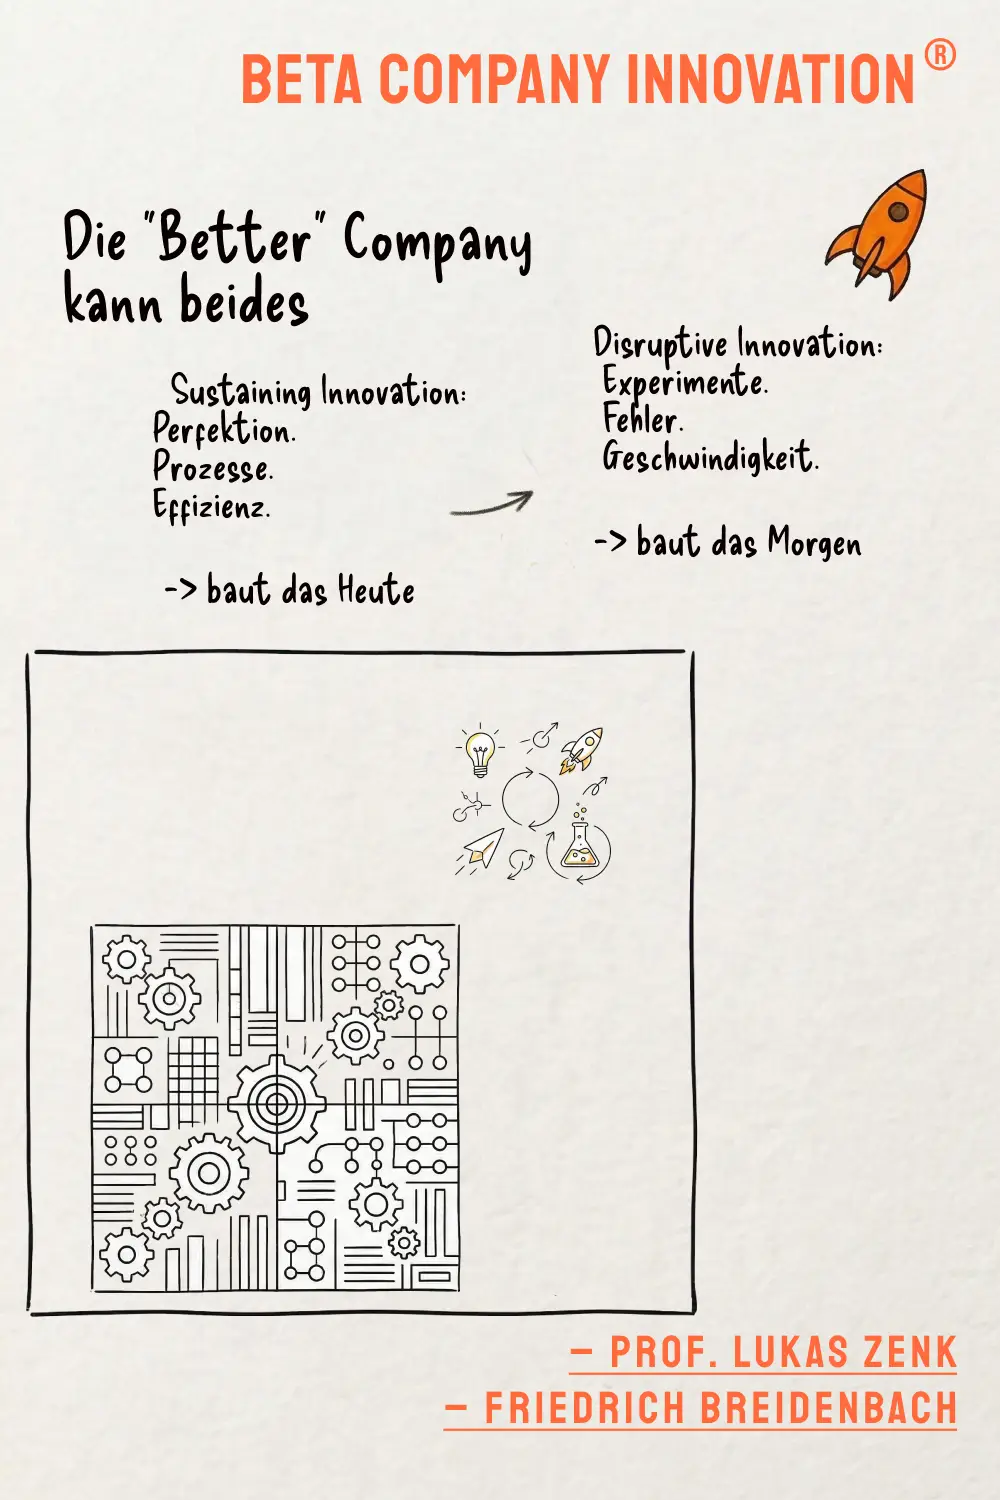 BETA COMPANY INNOVATION®
Die "Better" Company
kann beides
Sustaining Innovation:
Perfektion.
Prozesse.
Effizienz.
-> baut das Heute
Disruptive Innovation:
Experimente.
Fehler.
Geschwindigkeit.
-> baut das Morgen
– PROF. LUKAS ZENK
– FRIEDRICH BREIDENBACH